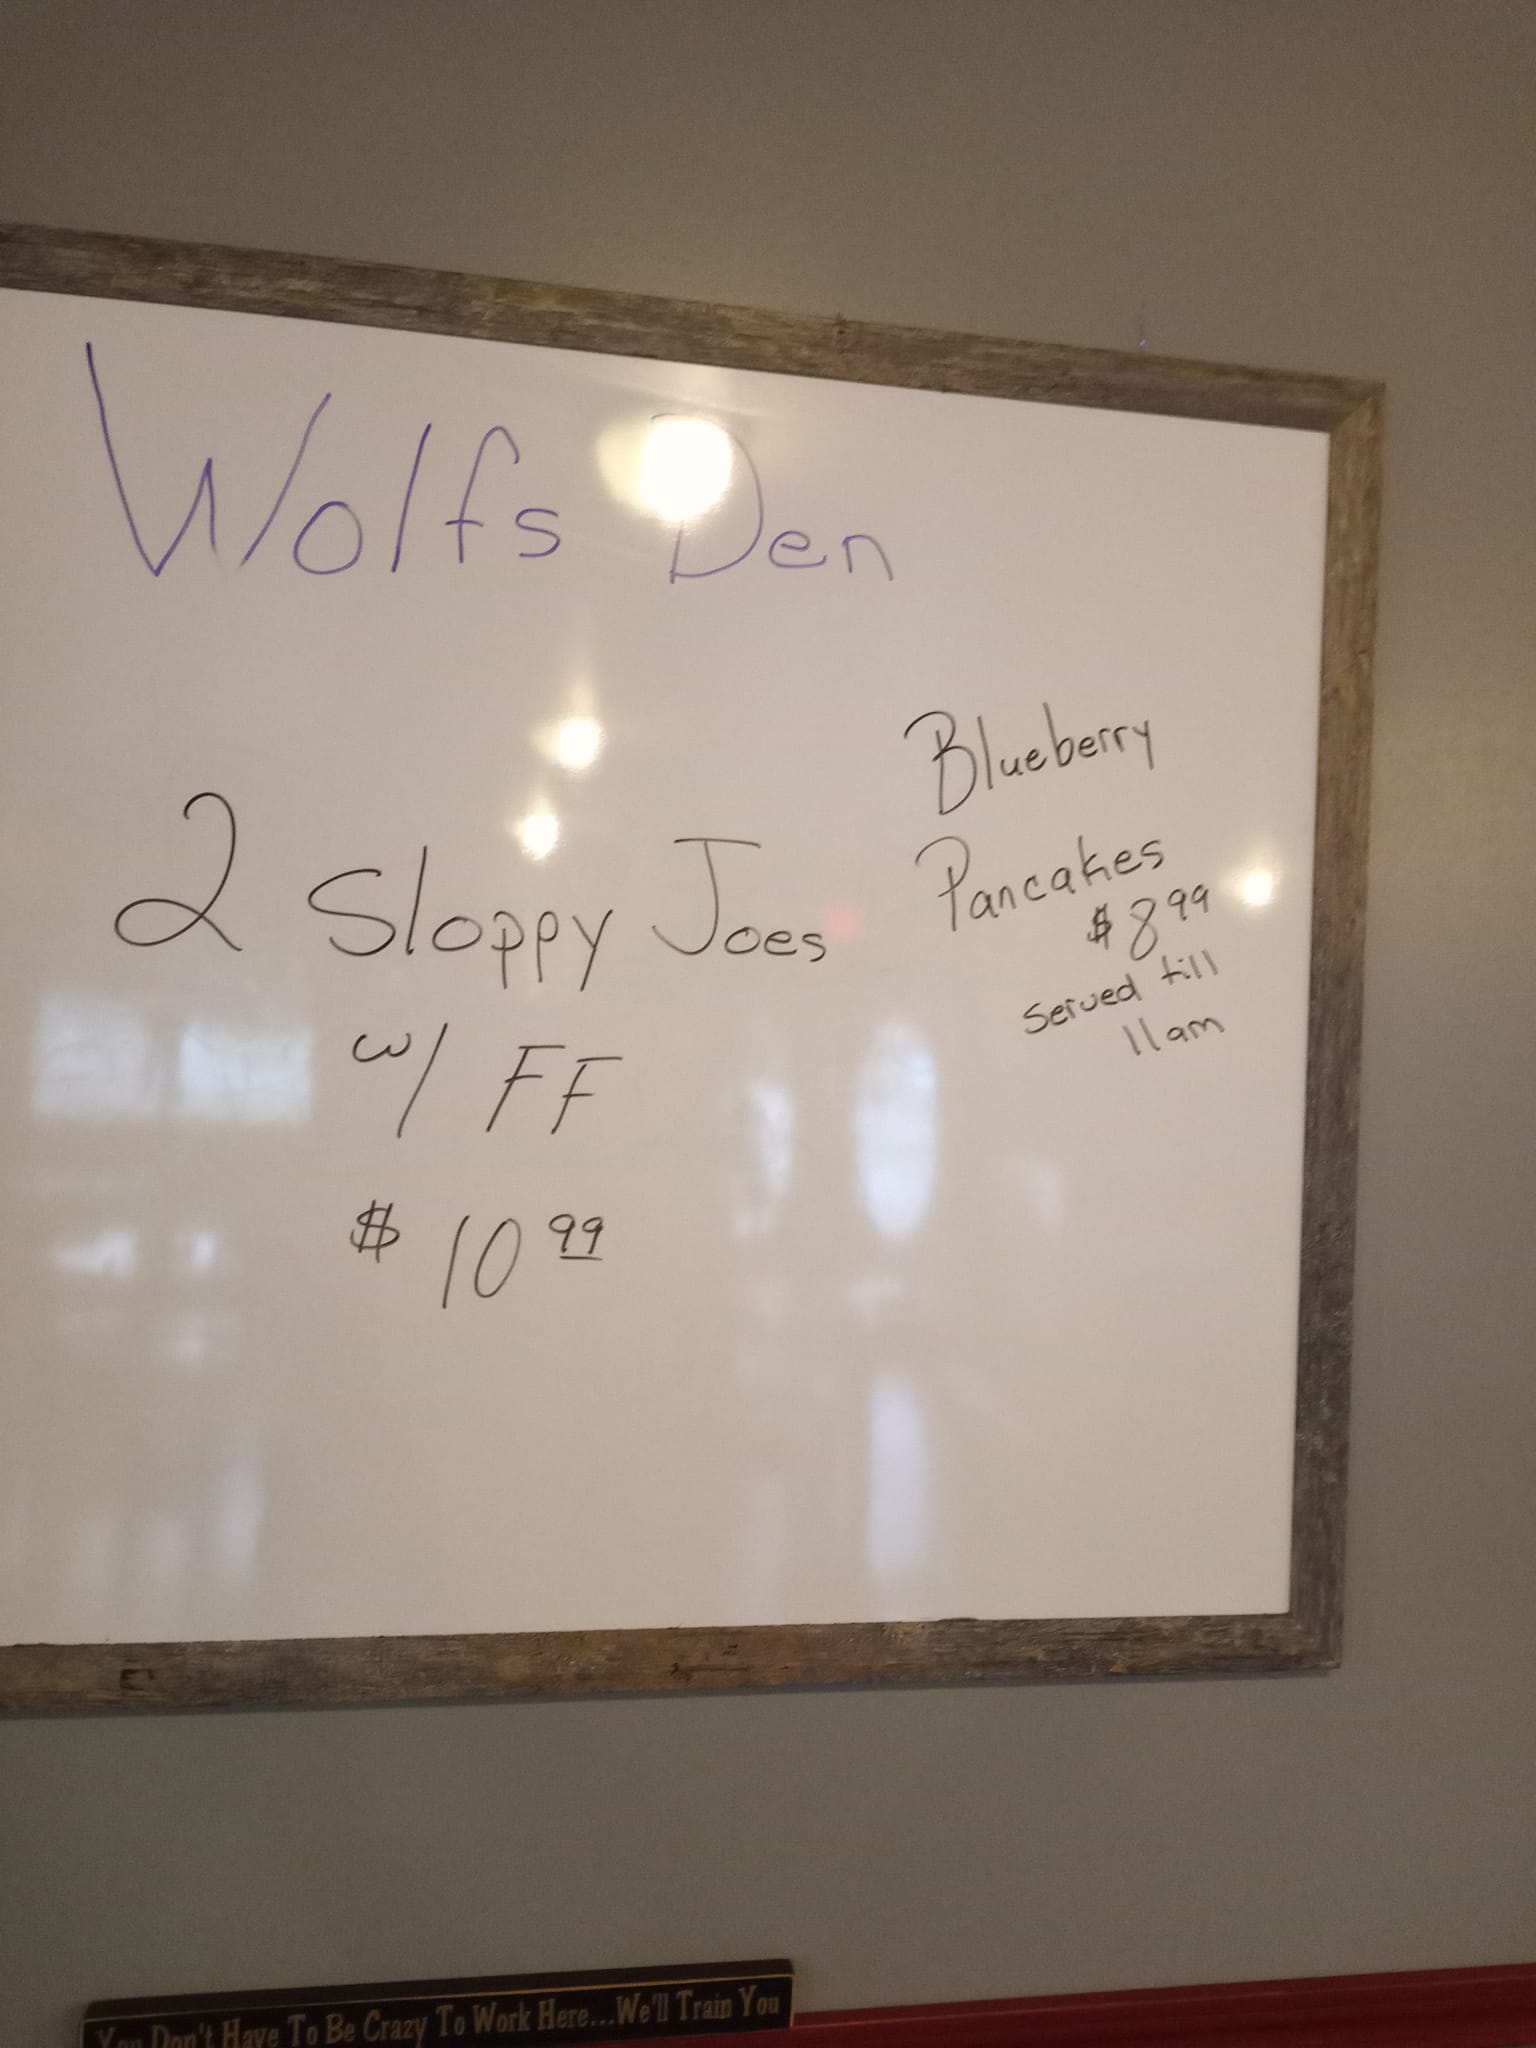 Wolfs Den
2 Sloppy Joes
w/ FF
$10.99
Blueberry
Pancakes
$8.99
served till
11am
You Don't Have To Be Crazy To Work Here...We'll Train You